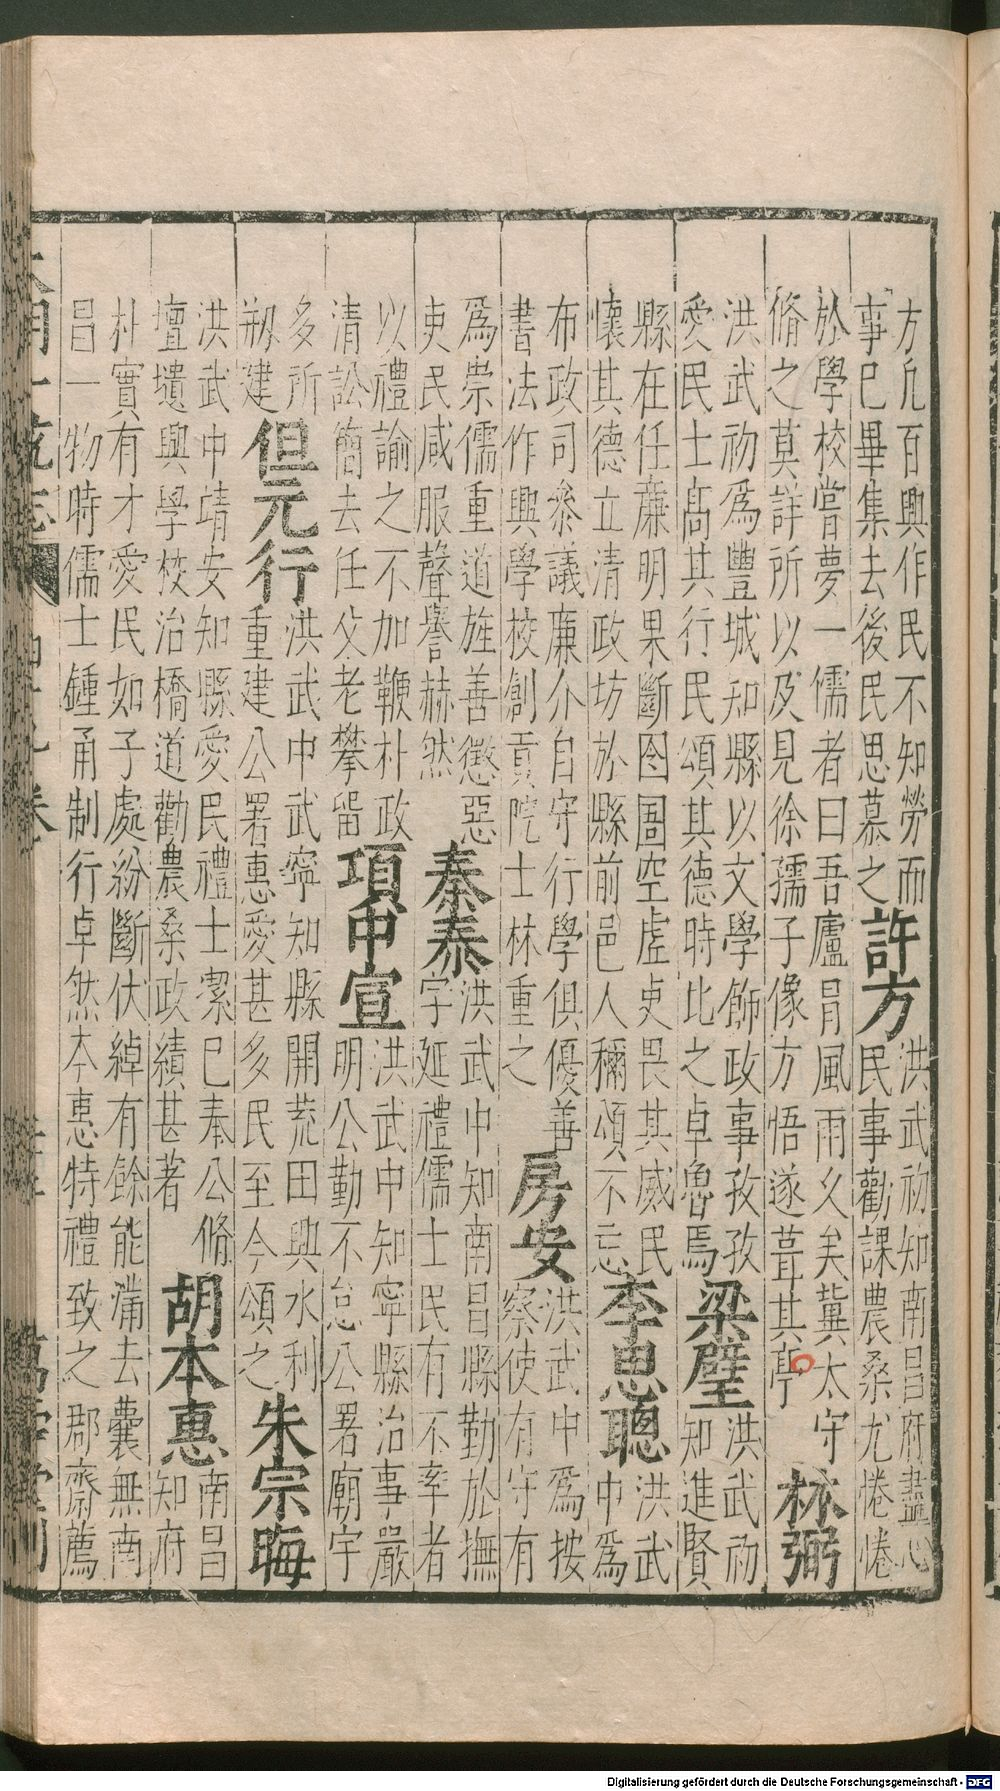 方凢百興作民不知勞而
事巳畢集去後民思慕之
許方
洪武初知南昌府盡心
民事勸課農桑尤惓惓
於學校嘗夢一儒者曰吾廬冐風雨久矣冀太守
脩之莫詳所以及見徐孺子像方悟遂葺其亭
林弼
洪武初爲豐城知縣以文學飾政事孜孜
愛民士髙其行民頌其德時比之卓魯焉
梁璧
洪武初
知進賢
縣在任亷明果斷囹圄空虛吏畏其威民
懷其德立清政坊於縣前邑人穪頌不忘
李思聰
洪武
中爲
布政司叅議亷介自守行學俱優善
書法作興學校創貢院士林重之
房安
洪武中爲按
察使有守有
爲崇儒重道旌善懲惡
吏民咸服聲譽赫然
秦泰
洪武中知南昌縣勤於撫
字延禮儒士民有不率者
以禮諭之不加鞭朴政
清訟簡去任父老攀留
項申宣
洪武中知寧縣治事嚴
明公勤不怠公署廟宇
多所
剏建
但元行
洪武中武寧知縣開荒田興水利
重建公署惠愛甚多民至今頌之
朱宗晦
洪武中靖安知縣愛民禮士潔巳奉公脩
壇壝興學校治橋道勸農桑政績甚著
胡本惠
南昌
知府
朴實有才愛民如子處紛斷伏綽有餘能滿去囊無南
昌一物時儒士鍾甬制行卓然本惠特禮致之郡齋薦
大明一統志
萬壽堂刊
Digitalisierung gefördert durch die Deutsche Forschungsgemeinschaft - DFG